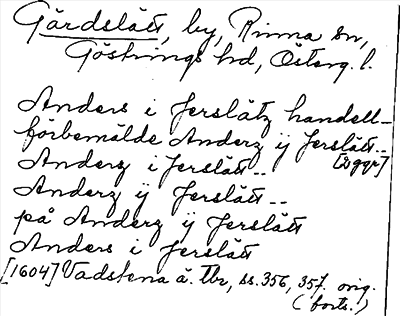 Gärdslätt, by, Rinna sn,
Göstrings hd, Österg. l.
Anders i Jerslätz handell-
förbemälde Anderz ij Jerslätt..
Anderz i Jerslätt.. [2 ggr]
Anderz ij Jerslätt..
på Anderz ij Jerslätt
Anders i Jerslätt
[1604] Vadstena ä. Tbr, ss. 356, 357. orig.
(forts.)